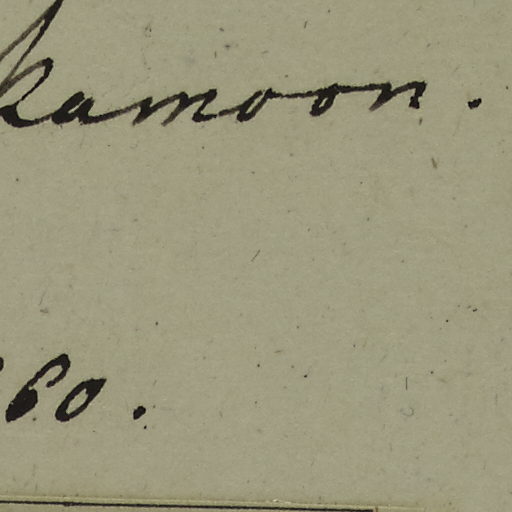 kamoon.
60.